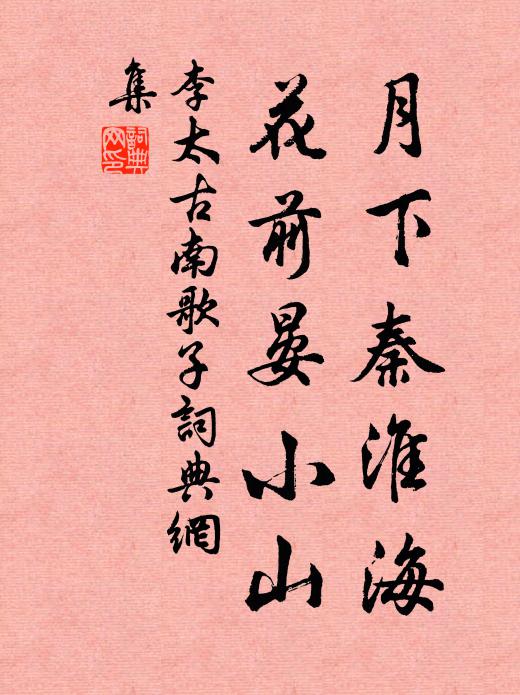 月下秦淮海
花前晏小山
李太古南歌子詞典網
集
詞典網印